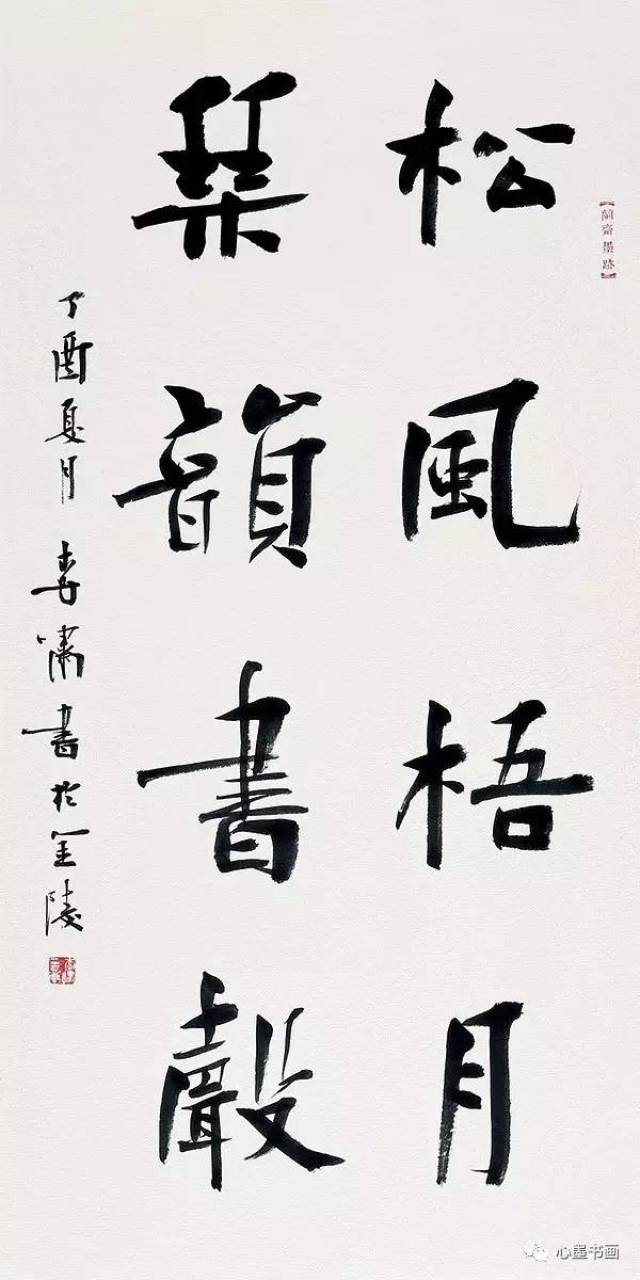 【蘭齋墨跡】
松風梧月
琹韻書聲
丁酉夏月李嘯書於金陵
心墨书画